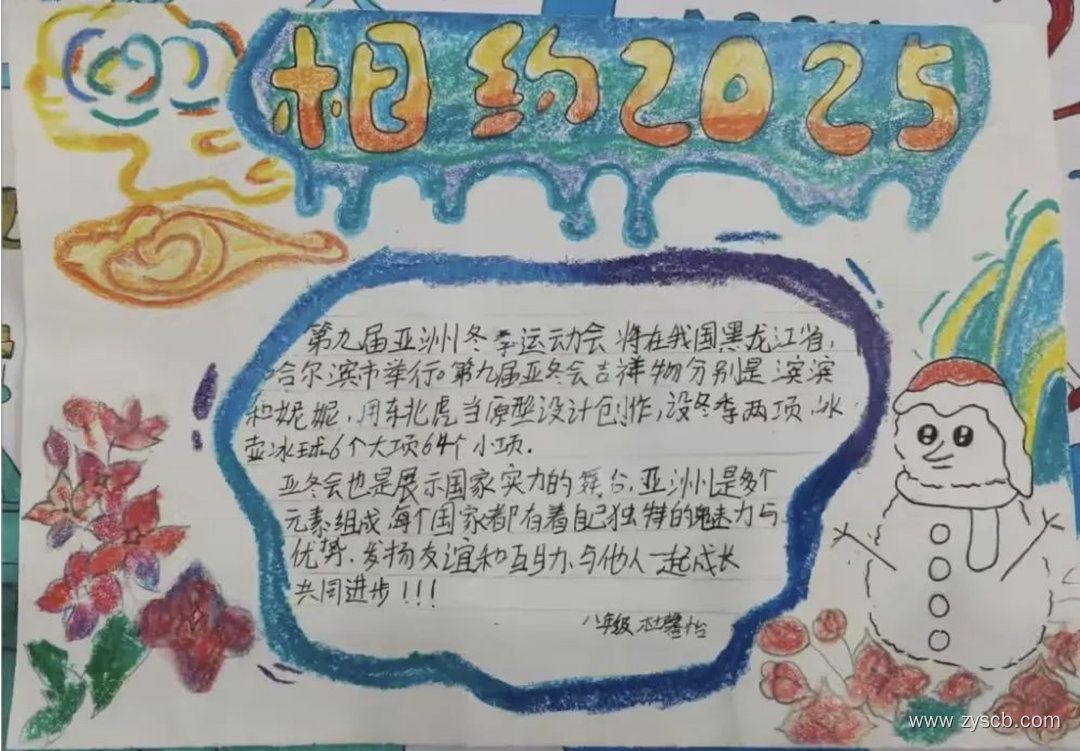 相约2025
第九届亚洲冬季运动会将在我国黑龙江省,
哈尔滨市举行。第九届亚冬会吉祥物分别是滨滨
和妮妮,用东北虎当原型设计创作,设冬季两项、冰
壶冰球6个大项64个小项.
亚冬会也是展示国家实力的舞台.亚洲州是多个
元素组成,每个国家都有着自己独特的魅力与
优势.发扬友谊和互助、与他人一起成长
共同进步!!!
八年级 杜馨怡
www.zyscb.com